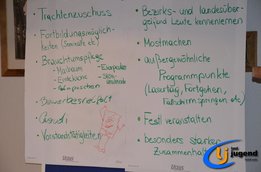 Trachtenzuschuss
Fortbildungsmöglich-
keiten (Seminare etc.)
Brauchtumspflege
- Maibaum
- Erntekrone
Bewerbsreifart
Casudi
Vorstandstätigkeiten
Bezirks- und landesüber-
greifend Leute kennenlernen
Mostmachen
außergewöhnliche
Programmpunkte
(Lasertag, Fortgehen,
Fallschirmspringen etc)
Festl veranstalten
besonders starker
Zusammenhalt
jugend